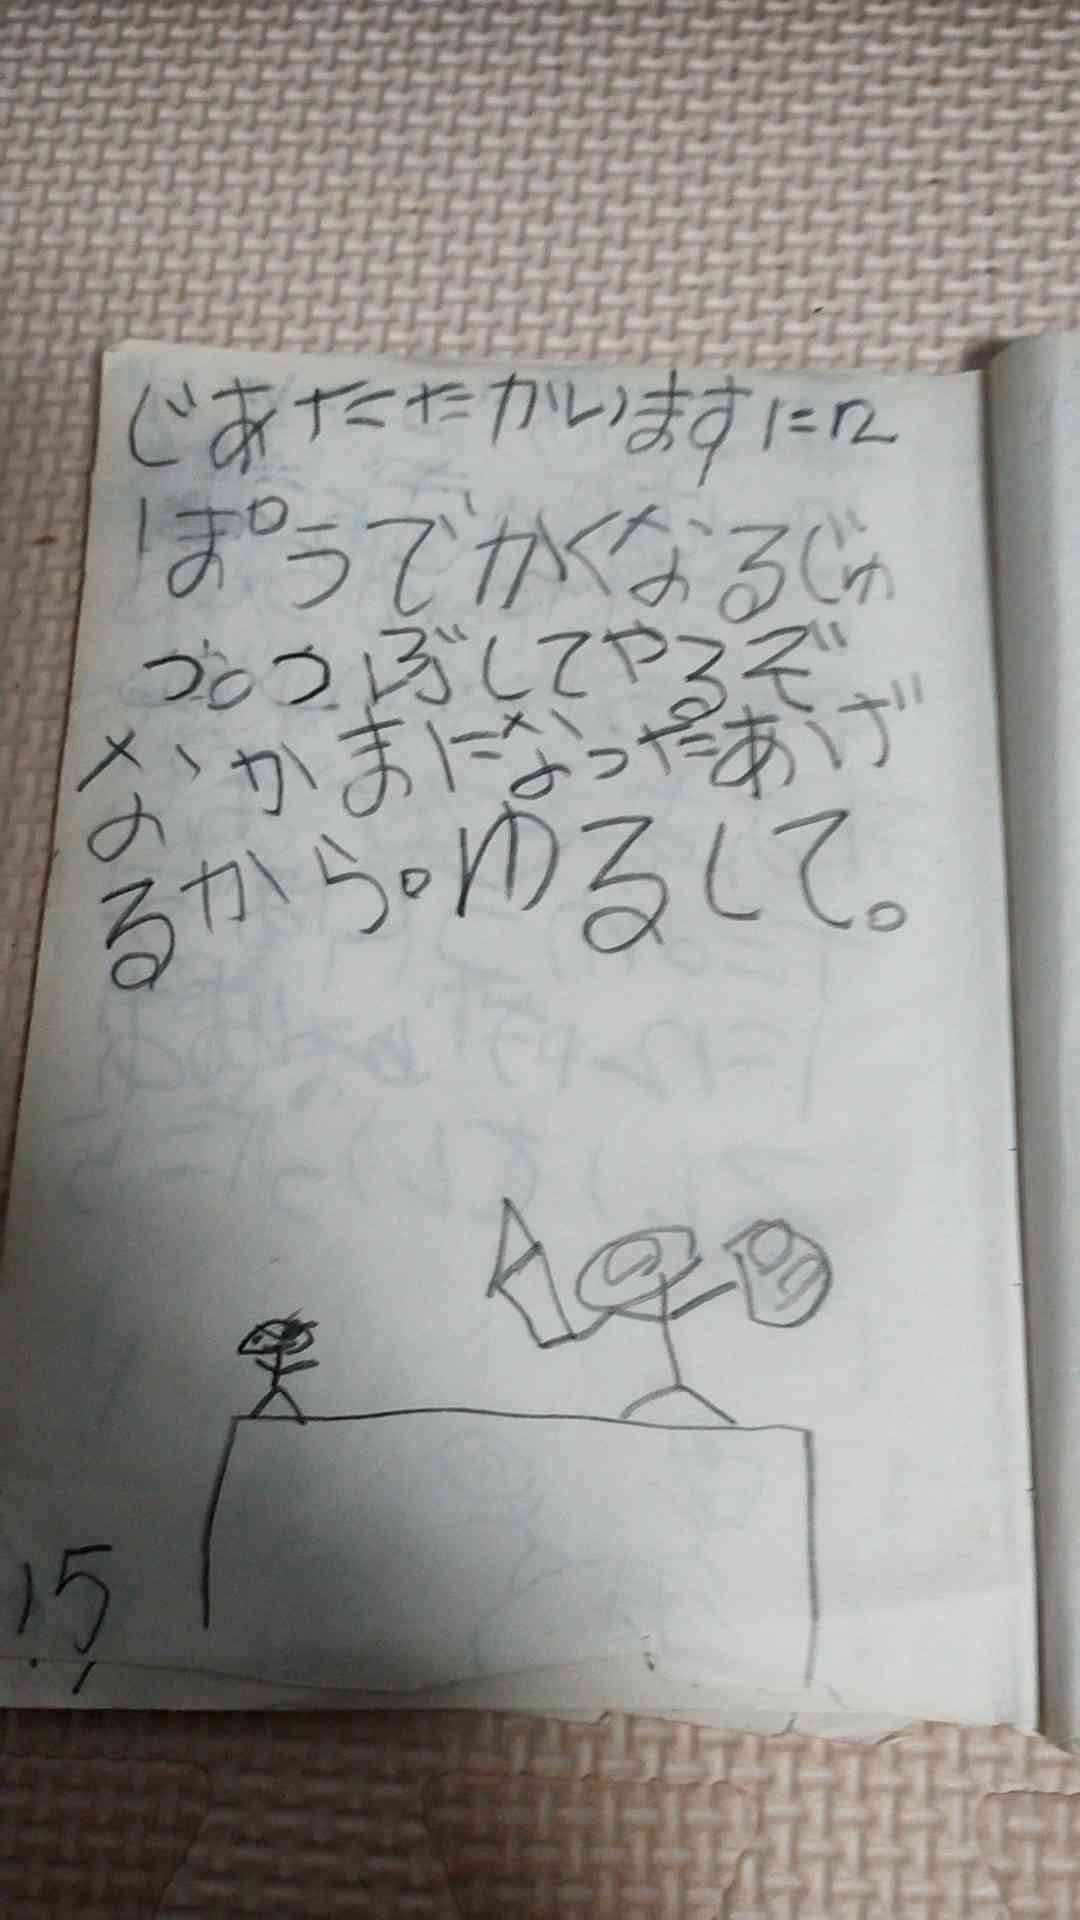 じあたたかいますにn
ぽうでかくなるじゅ
つ。つぶしてやるぞ
なかまになったあげ
るから。ゆるして。
15